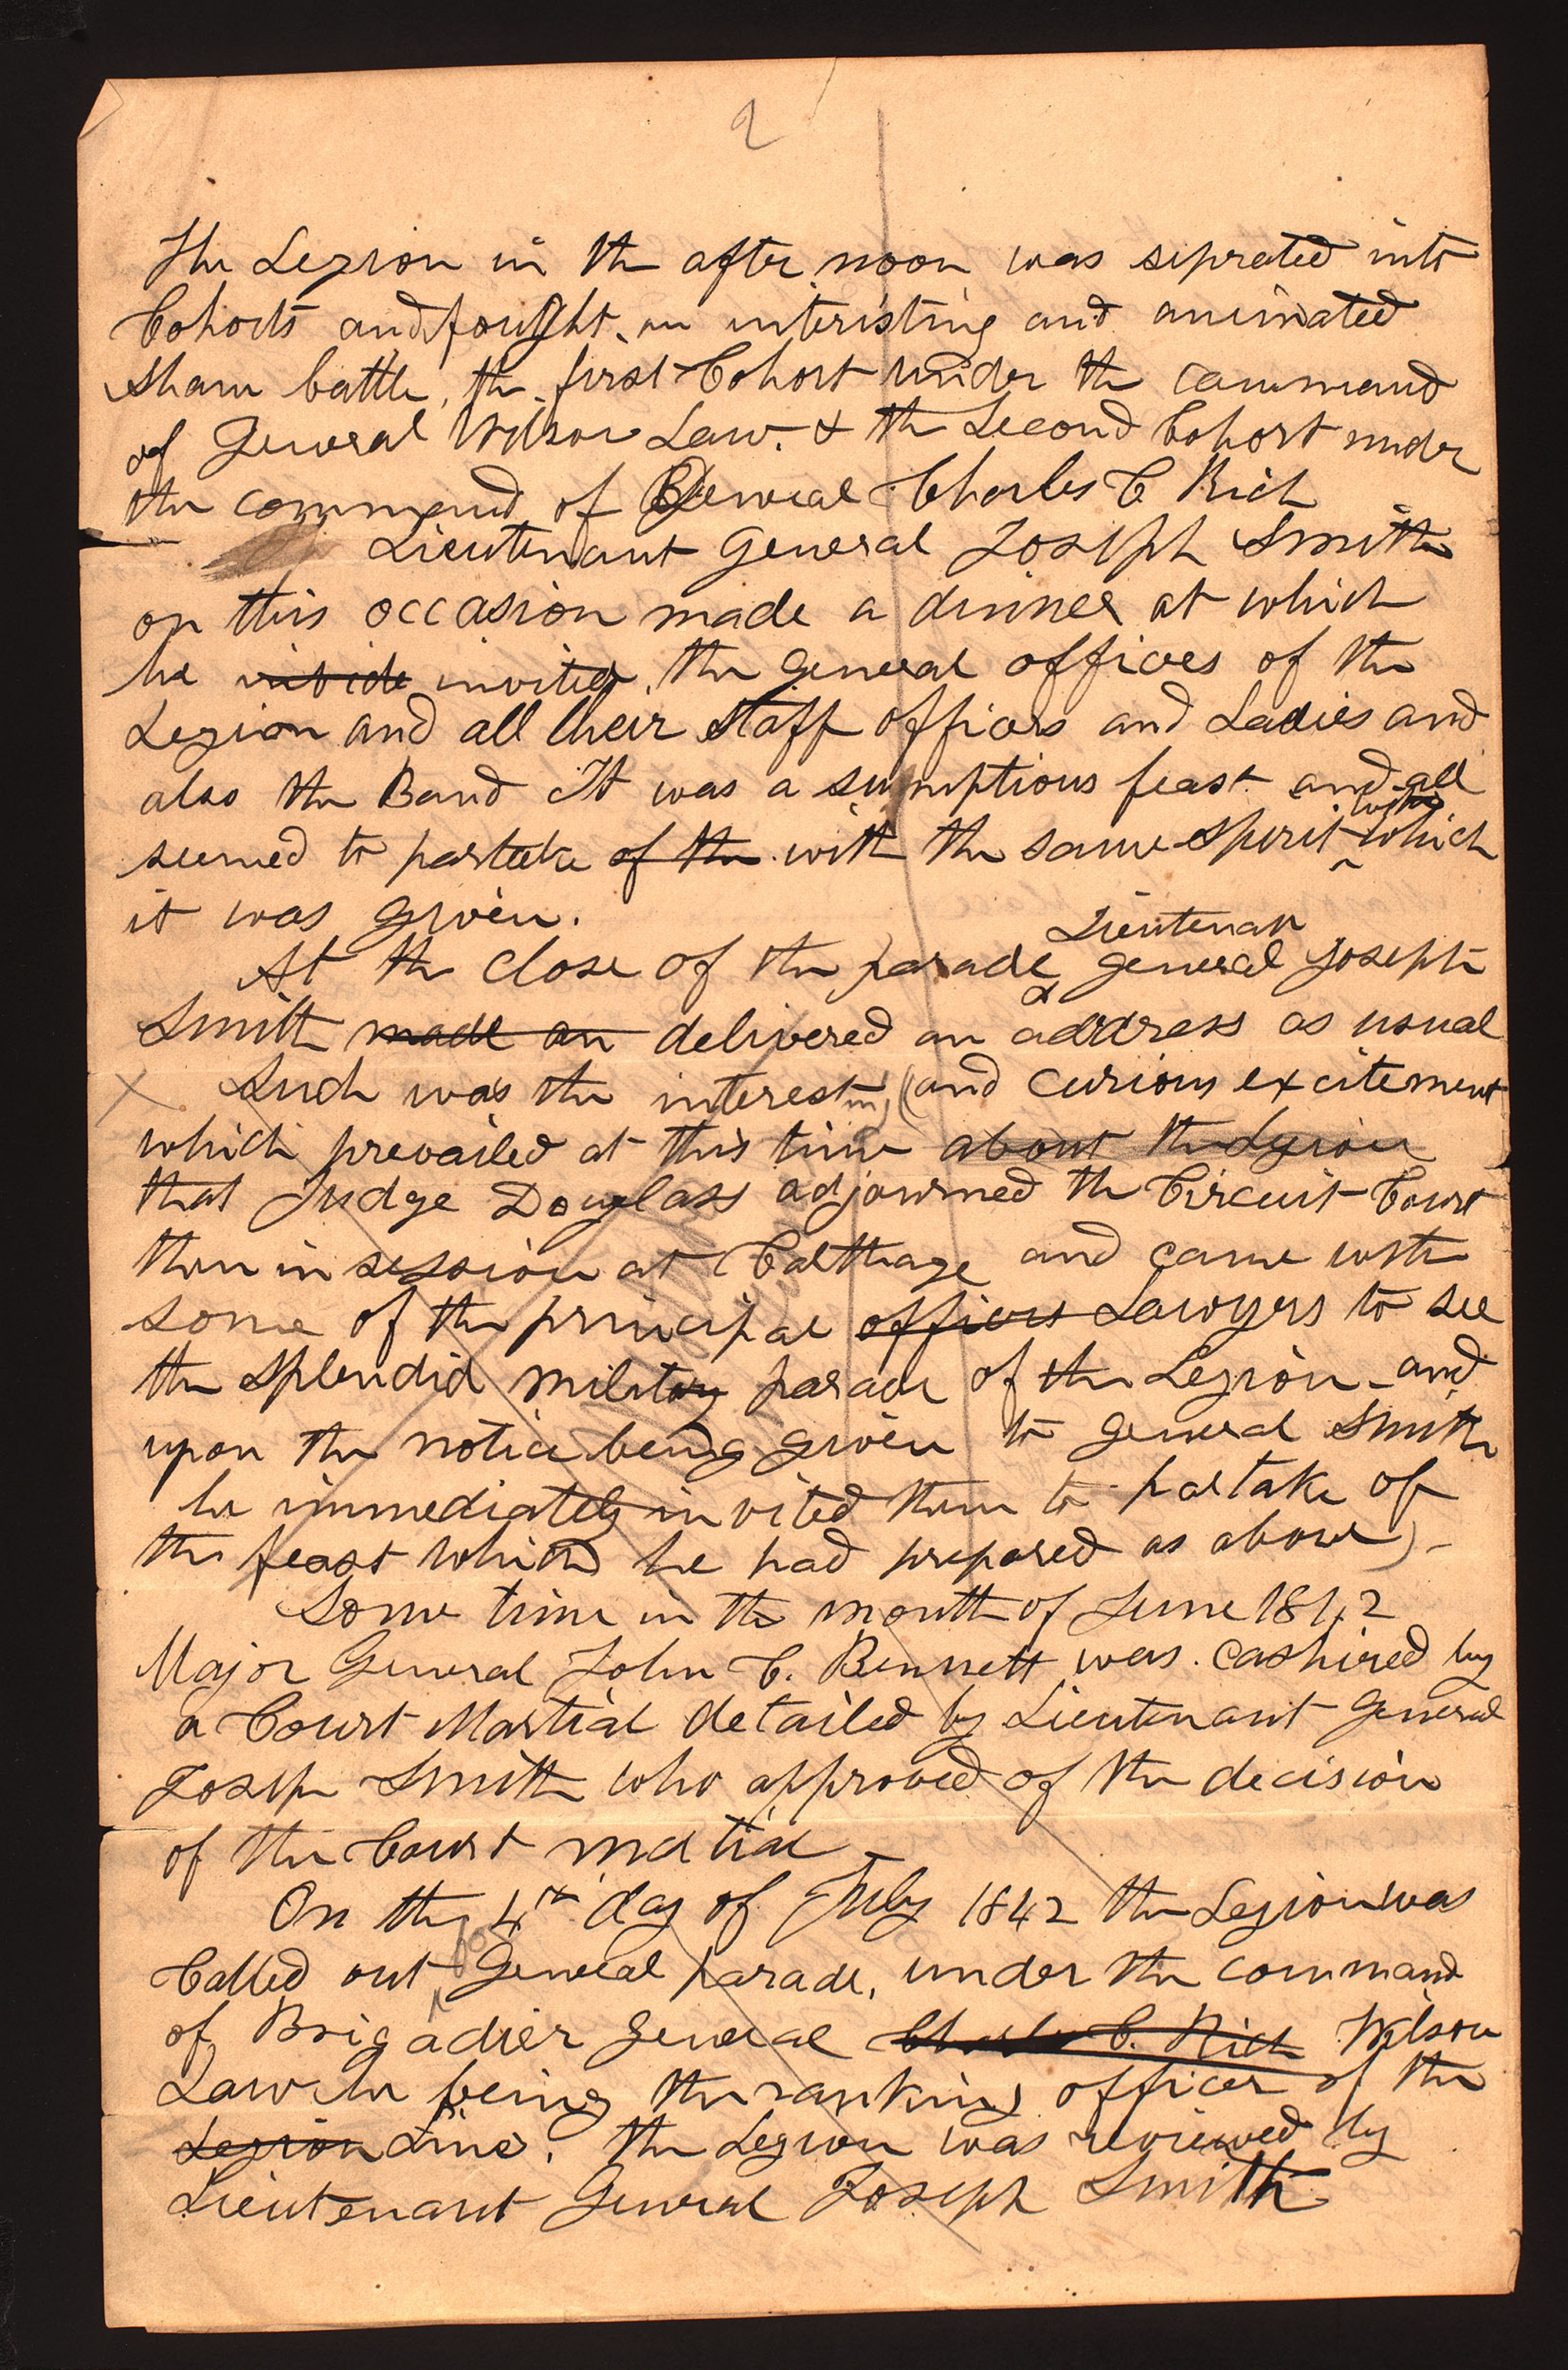 2
The Legion in the after noon was seprated into
Cohorts and fought an interisting and animated
sham battle, the first Cohort under the command
of General Wilson Law. & the Second Cohort under
the command of General Charles C Rich
Lieutenant General Joseph Smith
on this occasion made a dinner at which
he invited, the General offices of the
Legion and all their staff officers and Ladies and
also the Band It was a sumptious feast and all
with
seemed to parteke of the with the same spirit which
it was given.
Lieutenan
At the close of the parade General Joseph
Smith made an delivered an address as usual
X Such was the interesting (and curious excitement
which prevailed at this time about the Legion
that Judge Douglass adjourned the Circuit Court
then in session at Calthage and came with
some of the principal officers Lawyers to see
the splendid military parade of the Legion - and
upon the notice being given to General Smith
he immediately invited them to partake of
the feast which he had prepared as above) -
Some time in the month of June 1842
Major General John C. Bennett was cashired by
a Court Martial detailed by Lieutenant General
Joseph Smith who approved of the decision
of the Court matial
On the 4th day of July 1842 the Legion was
for
Called out General parade, under the command
of Brigadier General Charles C. Rich Wilson
Law he being the ranking officer of the
Legion Line. the Legion was reviewed by
Lieutenant General Joseph Smith